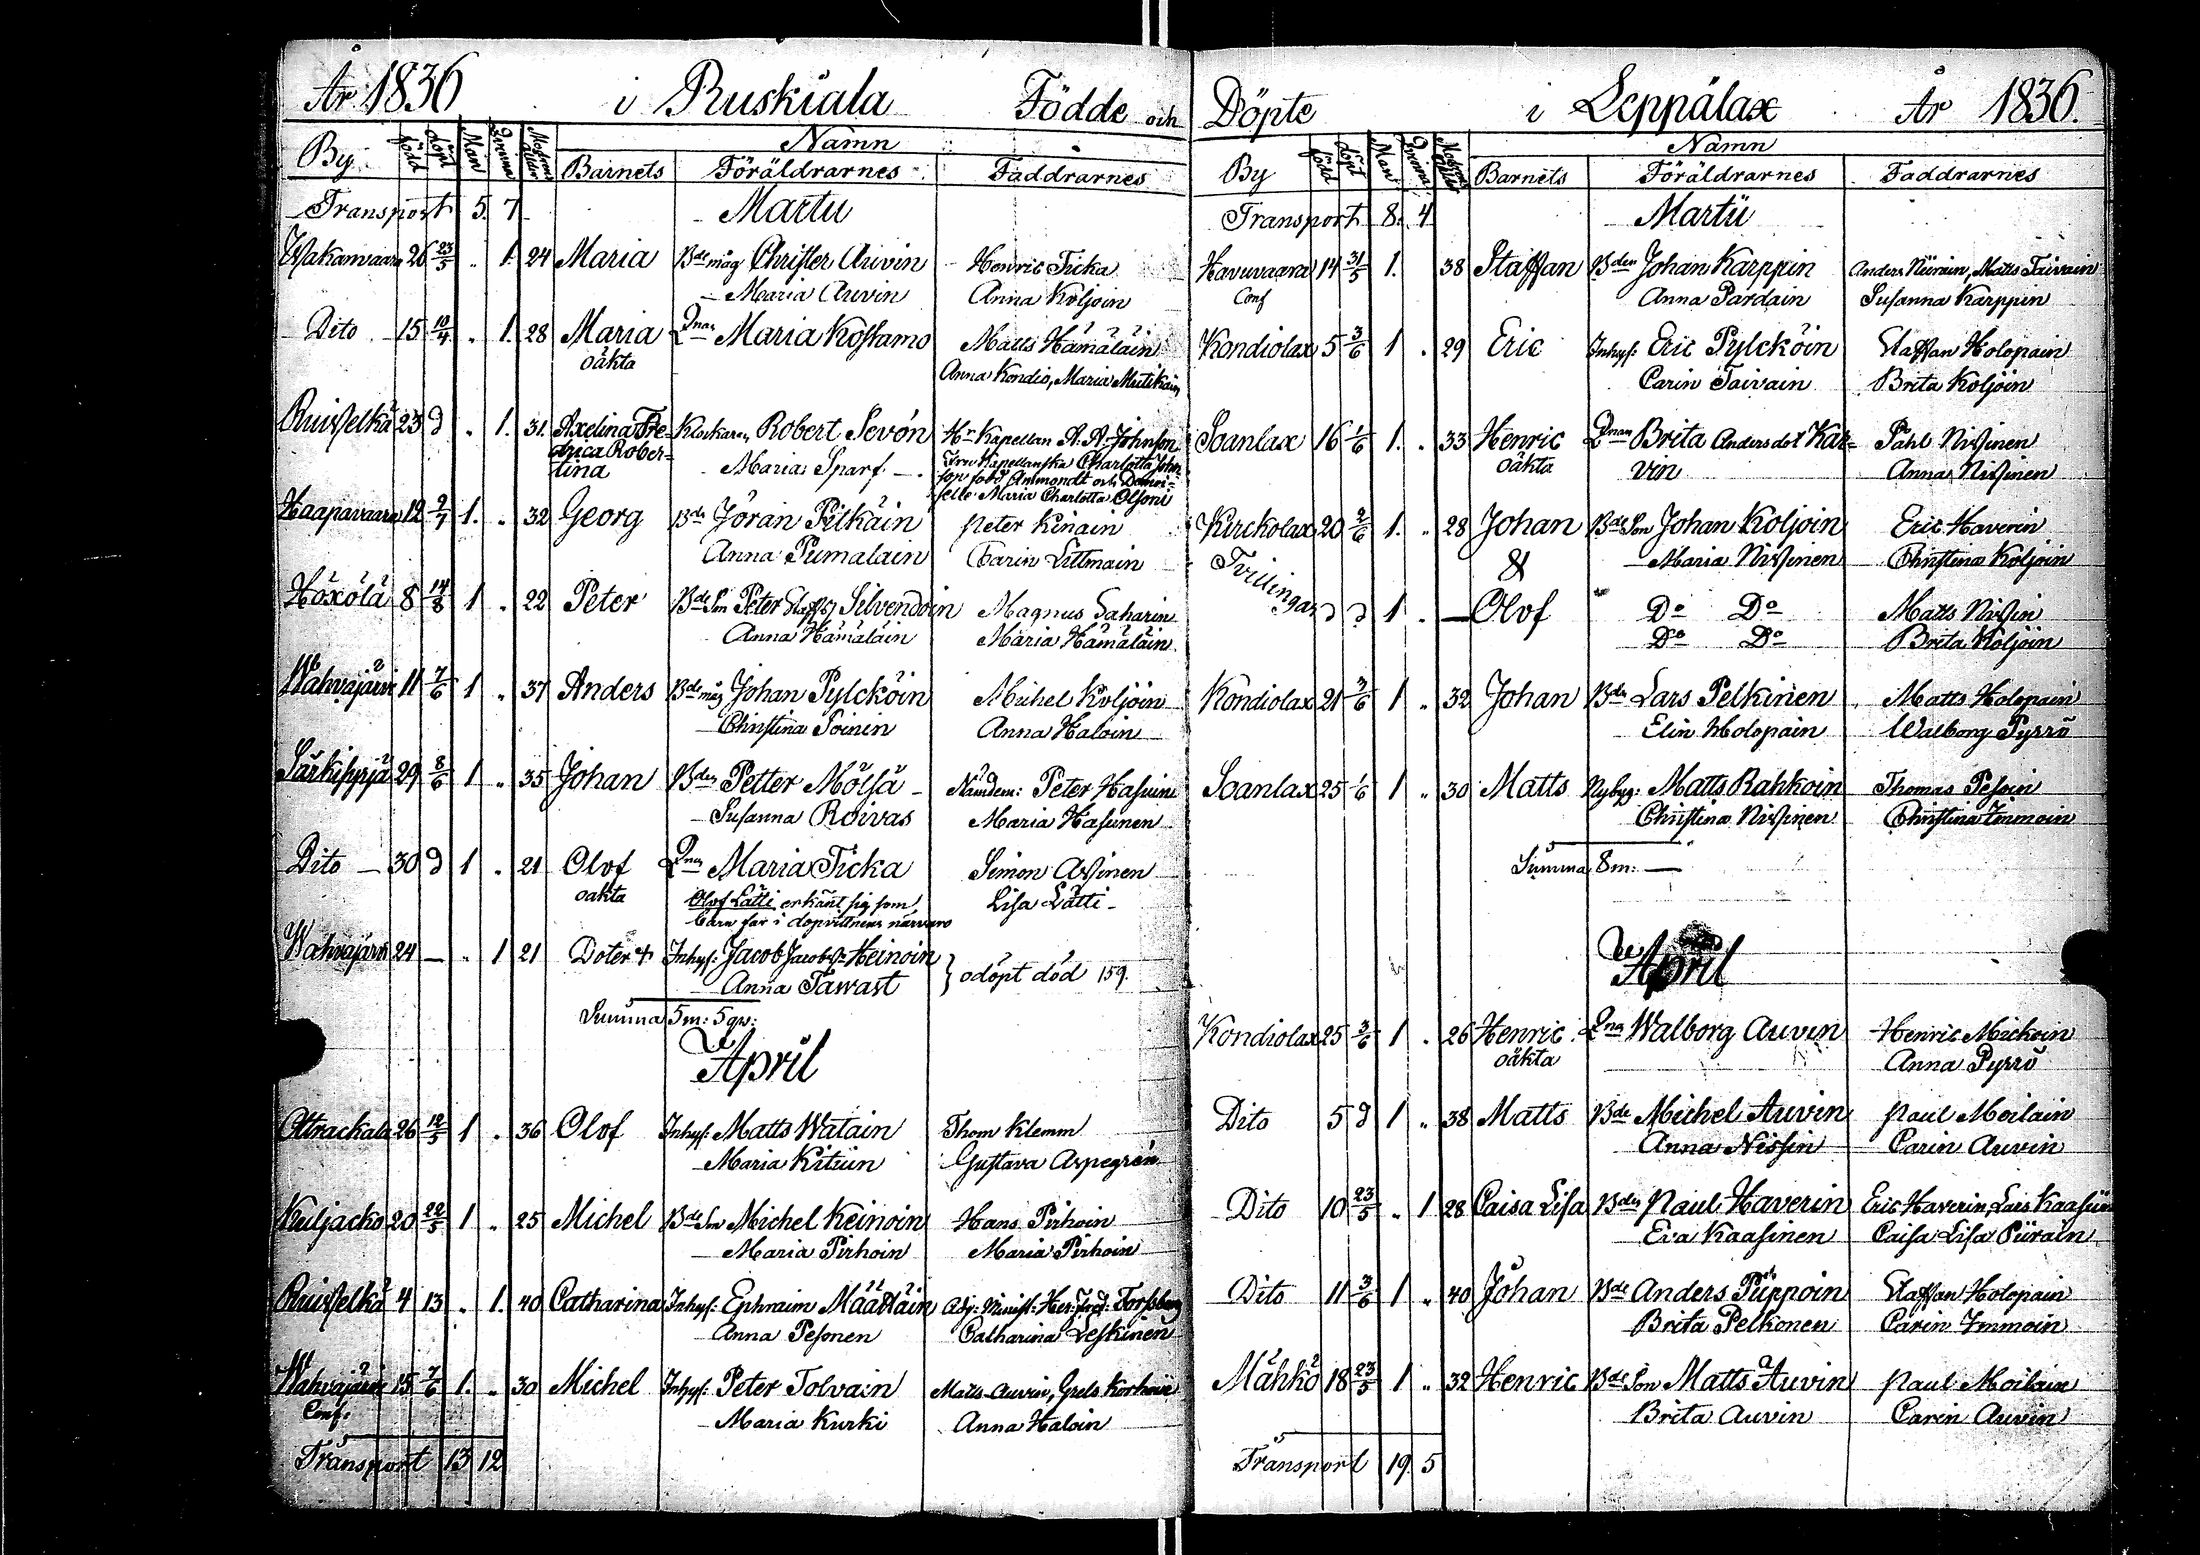 År 1836 i Ruskiala Födde och
By född döpt Man Qvinna Modrens ålder Namn
Barnets Föräldrarnes Faddrarnes
Transport 5. 7. Martii
Wakanvaara 26 23/5 „ 1. 24 Maria Bde måg Christer Auvin Henric Ticka
Maria Auvin Anna Koljoin
Dito 15 10/4 „ 1. 28 Maria Qnan Maria Kossamo Matts Hämäläin
oäkta Anna Kondio, Maria Mutikain
Ruisselkä 23 d „ 1. 31. Axelina Fre- Klockaren Robert Sevón Hr Kapellan A. A. Johnson
drica Rober= Maria Sparf Fru Kapellanska Charlotta John
tina son född Ammondt och Demoi=
selle Maria Charlotta Olsoni
Haapavaara 12 2/7 1. „ 32 Georg Bdn Jöran Pilkäin Peter Kinain
Anna Pumalain Carin Littmain
Höxölä 8 14/8 1 „ 22 Peter Bde Son Peter Staffs Silvendoin Magnus Saharin
Anna Hämäläin Maria Hämäläin
Wahvajärvi 11 7/6 1 „ 37 Anders Bde måg Johan Pylcköin Michel Koljoin
Christina Soinin Anna Haloin
Särkisyrjä 29 8/6 1 „ 35 Johan Bden Petter Mölsä Nämdem: Peter Hasuine
Susanna Roivas Maria Hasunen
Dito 30 d 1 „ 21 Olof Qnan Maria Ticka Simon Assinen
oäkta Olof Lätti erkänt sig som Lisa Lätti
barn far i dopvittnens närvaro
Wahvajärvi 24 — „ 1 21 Doter † Inhys: Jacob Jacobss Heinoin
Anna Tawast } odöpt död 159.
Summa 5 m: 5 qv:
April
Ottrackala 26 12/5 1 „ 36 Olof Inhys: Matts Watain Thom Klemm
Maria Kituin Gustava Aspegrén
Kuljacko 20 22/5 1 „ 25 Michel Bde Son Michel Keinoin Hans Pirhoin
Maria Pirhoin Maria Pirhoin
Ruisselkä 4 13 „ 1. 40 Catharina Inhys: Ephraim Määttäin Adj: Minist: Hen: Fred: Forssberg
Anna Pesonen Catharina Leskinen
Wahvajärvi 15 7/6 1. „ 30 Michel Inhys: Peter Tolvain Matts Auvin, Grels Korhoin
Conf: Maria Kurki Anna Haloin
Transport 13 12
Döpte i Leppälax År 1836.
By född döpt Man Qvinna Modrens ålder Namn
Barnets Föräldrarnes Faddrarnes
Transport 8. 4 Martii
Havuvaara 14 31/5 1. 38 Staffan Bden Johan Karppin Anders Niirain, Matts Taivain
Conf Anna Pardain Susanna Karppin
Kondiolax 5 3/6 1 „ 29 Eric Inhys: Eric Pylcköin Staffan Holopain
Carin Taivain Brita Koljoin
Soanlax 16 1/6 1. „ 33 Henric Qnan Brita Andersdot Kar= Påhl Nissinen
oäkta vin Anna Nissinen
Kirckolax 20 2/6 1. „ 28 Johan Bde Son Johan Koljoin Eric Haverin
& Maria Nissinen Christina Koljoin
Tvillingar d d 1 „ — Olof Do Do Matts Nissin
Do Do Brita Koljoin
Kondiolax 21 3/6 1 „ 32 Johan Bdn Lars Pelkinen Matts Holopain
Elin Holopain Walborg Pyrrö
Soanlax 25 1/6 1 „ 30 Matts Nybyg: Matts Rahkoin Thomas Pesoin
Christina Nissinen Christina Immoin
Summa 8 m: —
April
Kondiolax 25 3/6 1 „ 26 Henric Qna Walborg Auvin Henric Mickoin
oäkta Anna Pyrrö
Dito 5 d 1 „ 38 Matts Bde Michel Auvin Paul Moilain
Anna Nissin Carin Auvin
Dito 10 23/5 „ 1 28 Caisa Lisa Bden Paul Haverin Eric Haverin, Lars Kaasiin
Eva Kaasinen Caisa Lisa Piirain
Dito 11 3/6 1 „ 40 Johan Bde Anders Puppoin Staffan Holopain
Brita Pelkonen Carin Immoin
Mähkö 18 23/5 1 „ 32 Henric Bde Son Matts Auvin Paul Moilain
Brita Auvin Carin Auvin
Transport 19. 5